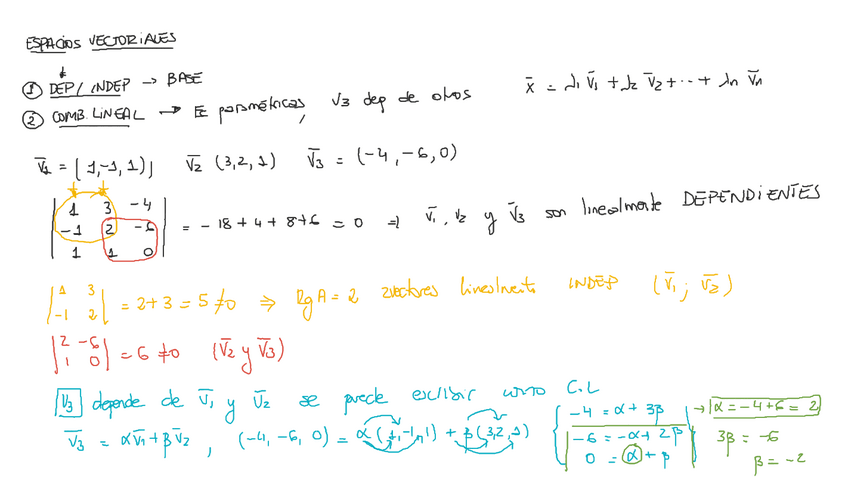 ESPACIOS VECTORIALES
① DEP / INDEP → BASE
② COMB. LINEAL → EC paramétricas, V3 dep de otros
x̄ = λ1 v̄1 + λ2 v̄2 + ... + λn v̄n
v̄1 = (1,-1,1); v̄2 (3,2,1) v̄3 = (-4,-6,0)
| 1 3 -4 |
| -1 2 -6 | = -18+4+8+6 = 0 ⇒ v̄1, v̄2 y v̄3 son linealmente DEPENDIENTES
| 1 1 0 |
| 1 3 |
| -1 2 | = 2+3 = 5 ≠ 0 ⇒ Rg A = 2 2 vectores linealmente INDEP (v̄1; v̄2)
| 2 -6 |
| 1 0 | = 6 ≠ 0 (v̄2 y v̄3)
v̄3 depende de v̄1 y v̄2 se puede escribir como C.L
v̄3 = αv̄1 + βv̄2, (-4,-6,0) = α(1,-1,1) + β(3,2,1)
-4 = α + 3β → α = -4+6 = 2
-6 = -α + 2β 3β = -6
0 = α + β β = -2